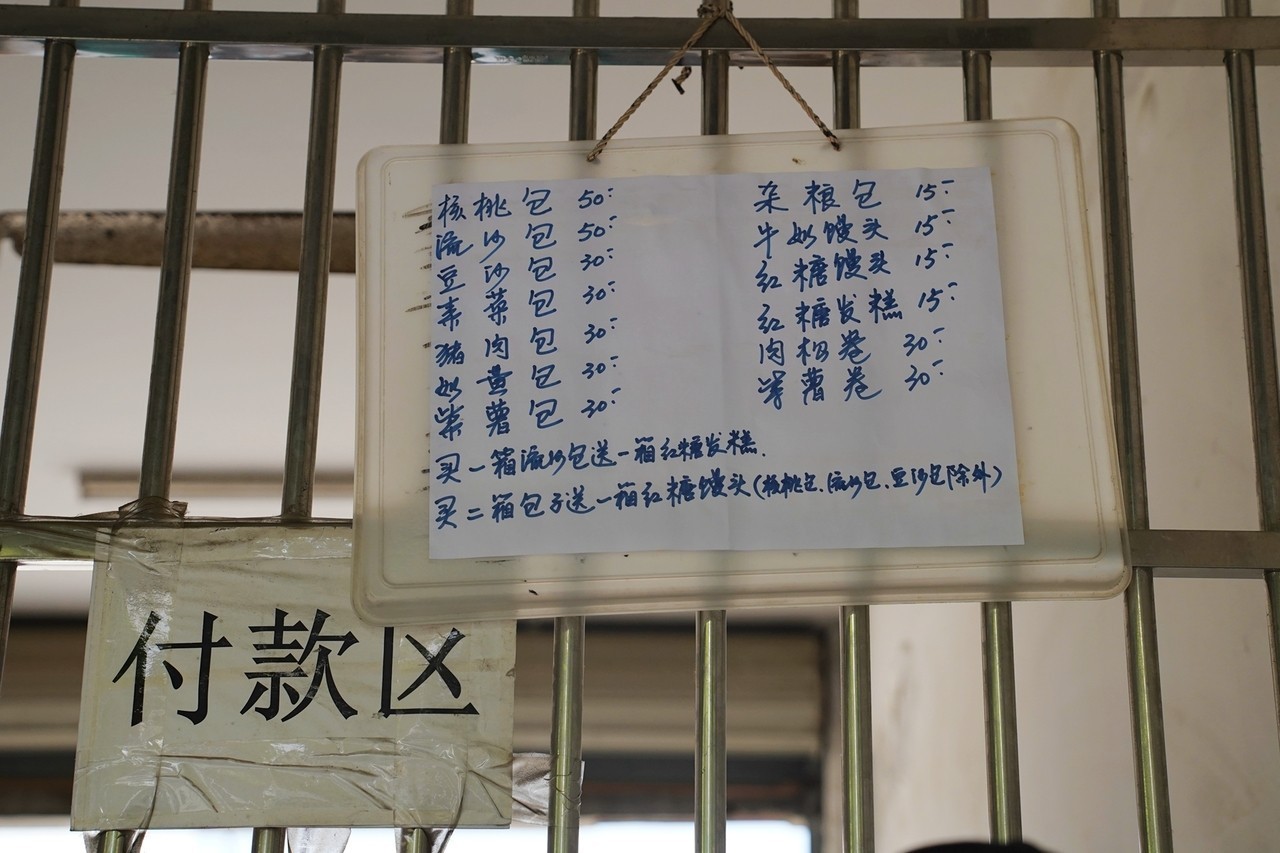 核桃包 50:-
流沙包 50:-
豆沙包 30:-
素菜包 30:-
猪肉包 30:-
奶黄包 30:-
紫薯包 30:-
杂粮包 15:-
牛奶馒头 15:-
红糖馒头 15:-
红糖发糕 15:-
肉松卷 30:-
紫薯卷 30:-
买一箱流沙包送一箱红糖发糕.
买二箱包子送一箱红糖馒头(核桃包、流沙包、豆沙包除外)
付款区